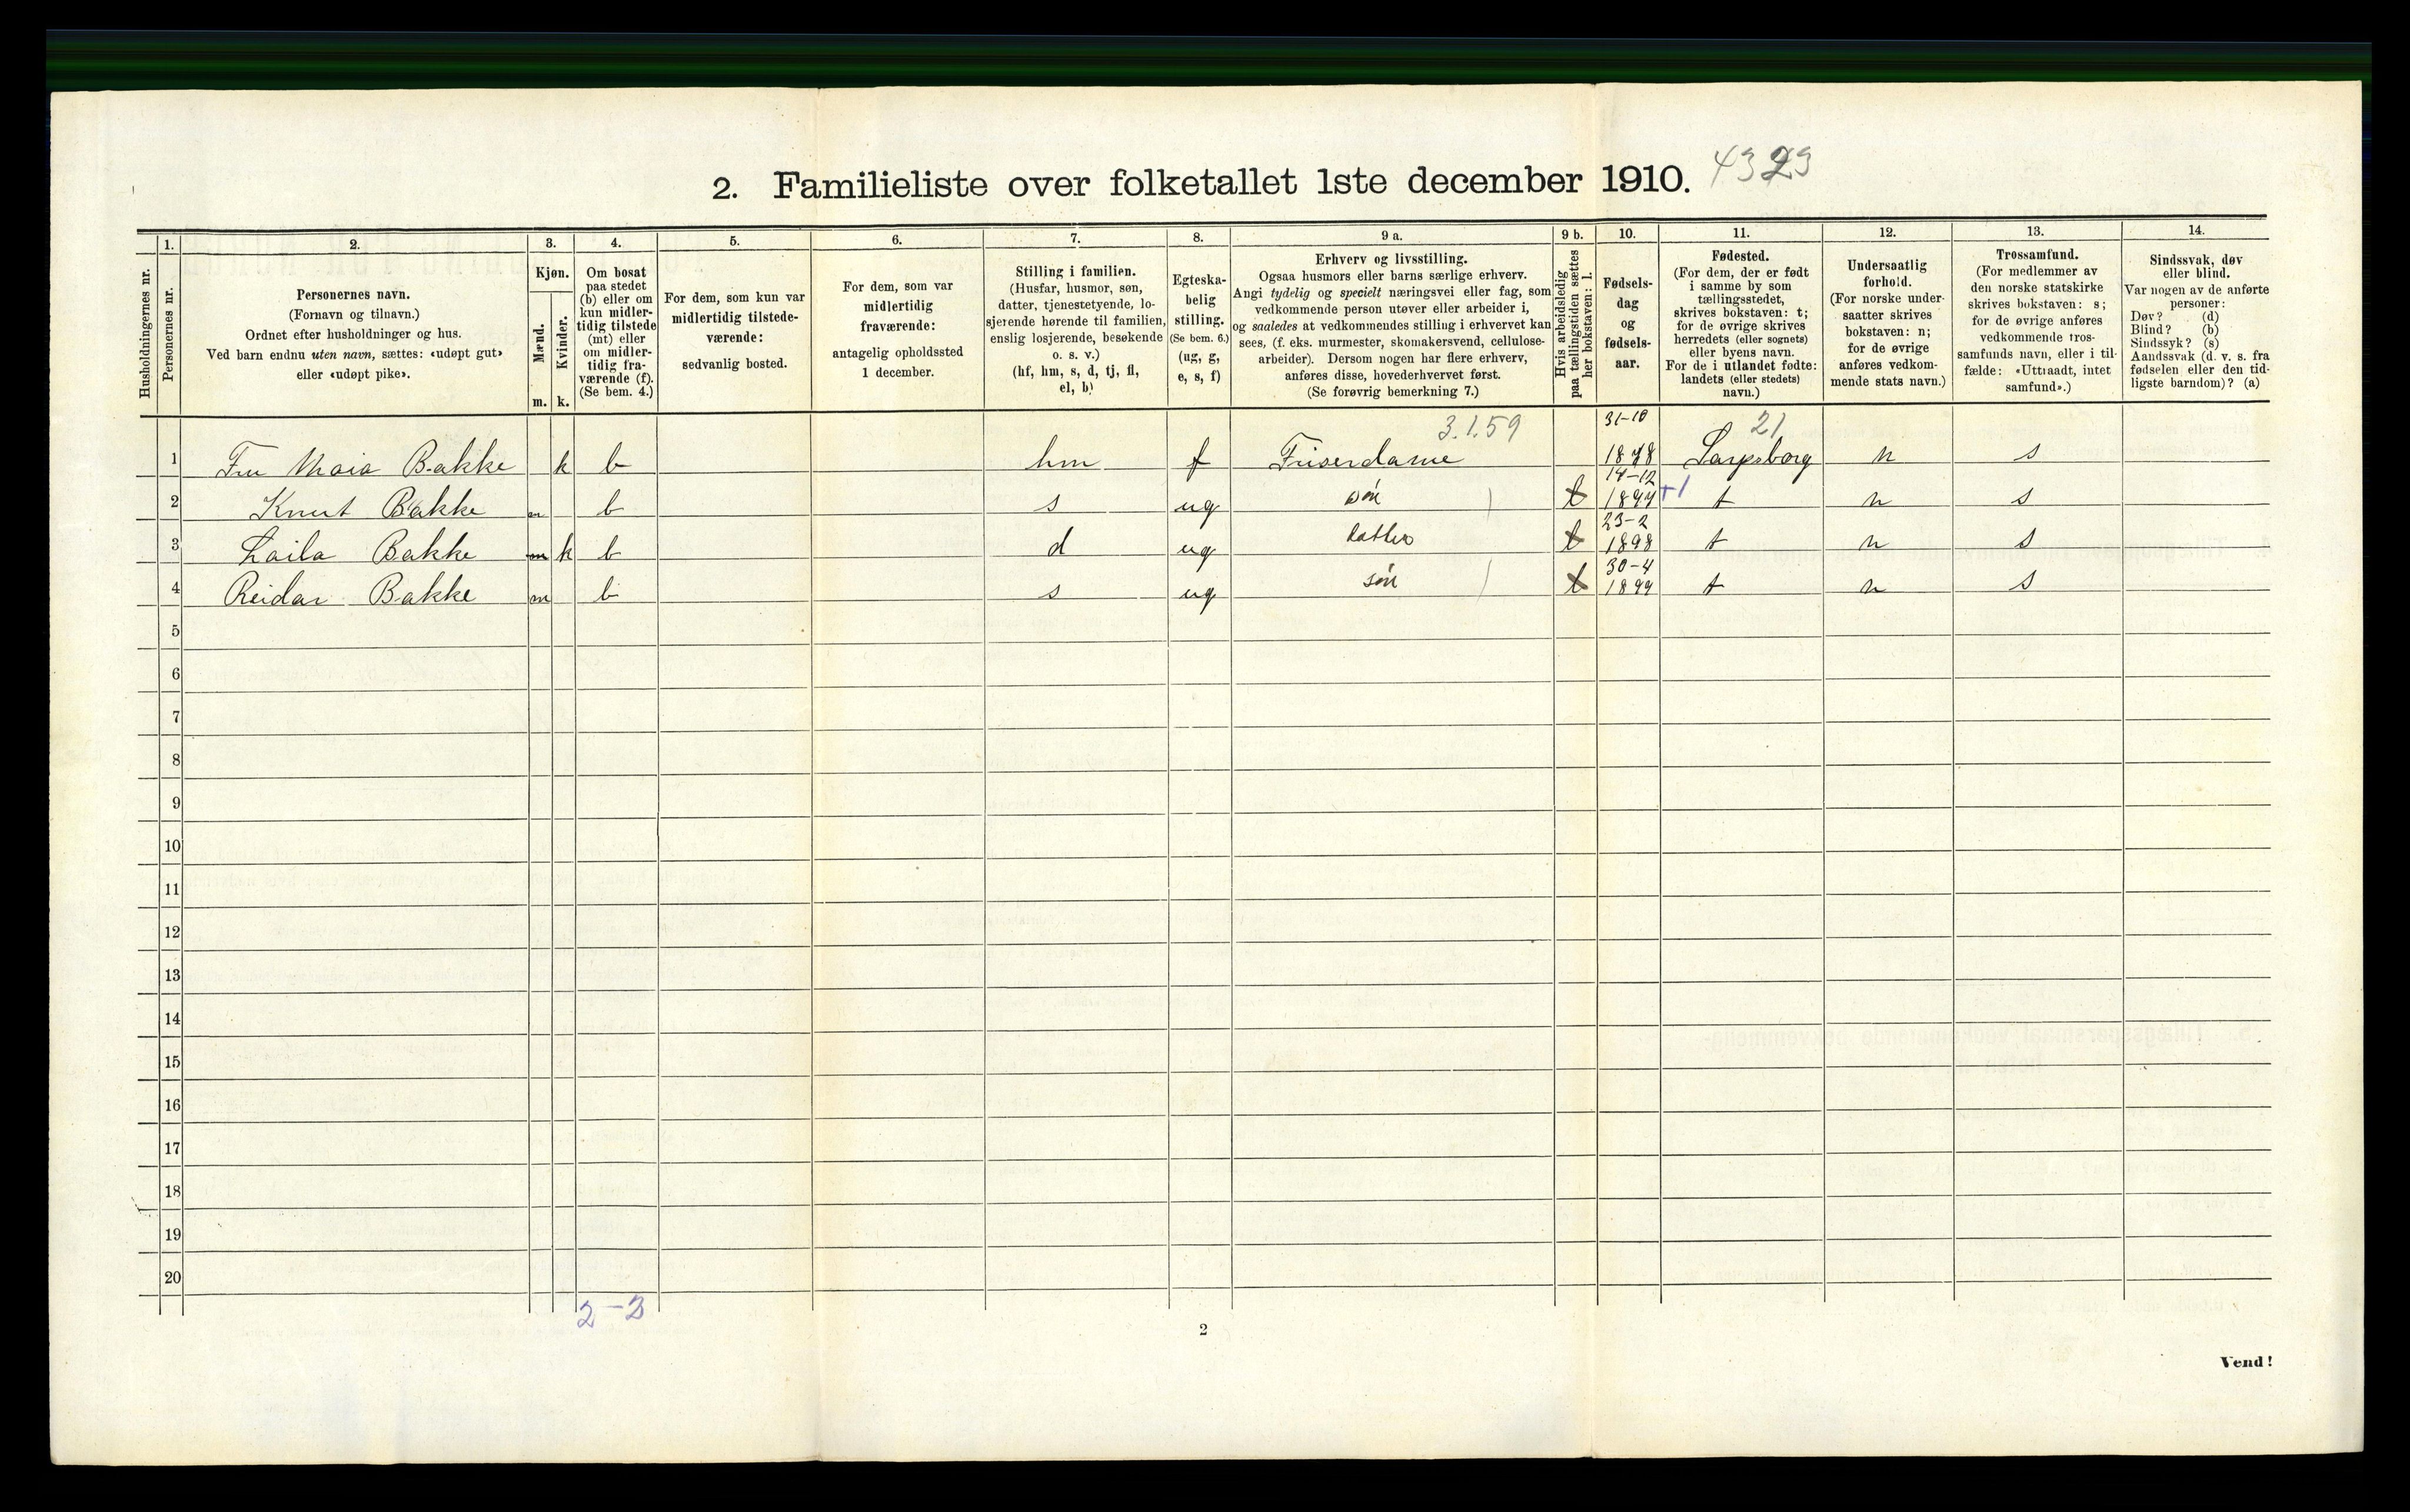 2. Familieliste over folketallet 1ste december 1910. 4323
1.
2.
3.
4.
5.
6.
7.
8.
9 a.
9 b.
10.
11.
12.
13.
14.
Husholdningernes nr.
Personernes nr.
Personernes navn.
(Fornavn og tilnavn.)
Ordnet efter husholdninger og hus.
Ved barn endnu uten navn, sættes: «udøpt gut»
eller «udøpt pike».
Kjøn.
Mænd.
Kvinder.
m. k.
Om bosat
paa stedet
(b) eller om
kun midler-
tidig tilstede
(mt) eller
om midler-
tidig fra-
værende (f).
(Se bem. 4.)
For dem, som kun var
midlertidig tilstede-
værende:
sedvanlig bosted.
For dem, som var
midlertidig
fraværende:
antagelig opholdssted
1 december.
Stilling i familien.
(Husfar, husmor, søn,
datter, tjenestetyende, lo-
sjerende hørende til familien,
enslig losjerende, besøkende
o. s. v.)
(hf, hm, s, d, tj, fl,
el, b)
Egteska-
belig
stilling.
(Se bem. 6.)
(ug, g,
e, s, f)
Erhverv og livsstilling.
Ogsaa husmors eller barns særlige erhverv.
Angi tydelig og specielt næringsvei eller fag, som
vedkommende person utøver eller arbeider i,
og saaledes at vedkommendes stilling i erhvervet kan
sees, (f. eks. murmester, skomakersvend, cellulose-
arbeider). Dersom nogen har flere erhverv,
anføres disse, hovederhvervet først.
(Se forøvrig bemerkning 7.)
Hvis arbeidsledig
paa tællingstiden sættes
her bokstaven: l.
Fødsels-
dag
og
fødsels-
aar.
Fødested.
(For dem, der er født
i samme by som
tællingsstedet,
skrives bokstaven: t;
for de øvrige skrives
herredets (eller sognets)
eller byens navn.
For de i utlandet fødte:
landets (eller stedets)
navn.)
Undersaatlig
forhold.
(For norske under-
saatter skrives
bokstaven: n;
for de øvrige
anføres vedkom-
mende stats navn.)
Trossamfund.
(For medlemmer av
den norske statskirke
skrives bokstaven: s;
for de øvrige anføres
vedkommende tros-
samfunds navn, eller i til-
fælde: «Uttraadt, intet
samfund».)
Sindssvak, døv
eller blind.
Var nogen av de anførte
personer:
Døv? (d)
Blind? (b)
Sindssyk? (s)
Aandssvak (d. v. s. fra
fødselen eller den tid-
ligste barndom)? (a)
3.1.59 31-10 21
1 Fru Maia Bakke k b hm f Friserdame 1878 Sarpsborg n s
14-12
2 Knut Bakke m b s ug søn t 1894 +1 t n s
23-2
3 Laila Bakke m k b d ug datter t 1898 t n s
30-4
4 Reidar Bakke m b s ug søn t 1899 t n s
5
6
7
8
9
10
11
12
13
14
15
16
17
18
19
20
2-2
2
Vend!